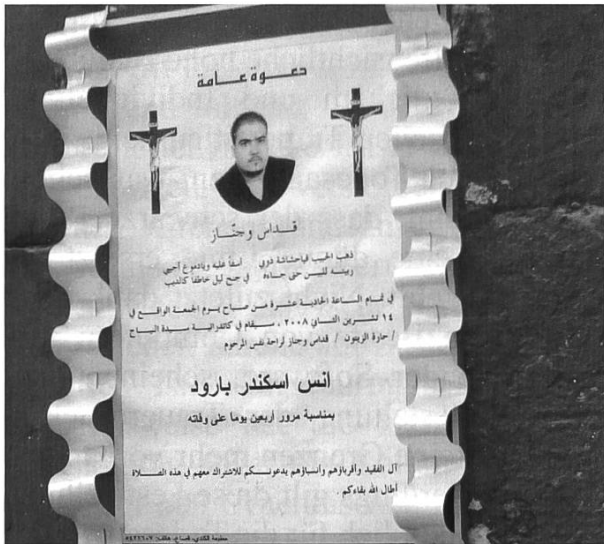 دعـــوة عـــامة
قداس وجنّـاز
ذهب الحبيب فياحشاشة ذوبي أسفاً عليه ويادموع أجيبي
ربيته للبس حتى جاءه في جنح ليل خاطفا كالذيب
في تمام الساعة الحادية عشرة من صباح يوم الجمعة الواقع في
١٤ تشرين الثاني ٢٠٠٨ ، سيقام في كاتدرائية سيدة النياح
/ حارة الزيتون / قداس وجناز لراحة نفس المرحوم
انس اسكندر بارود
بمناسبة مرور أربعين يوما على وفاته
آل الفقيد وأقرباؤهم وأنسباؤهم يدعونـكم للاشتراك معهم في هذه الصـلاة
أطال الله بقاءكم .
مطبعة الكندي، قصاع، هاتف: ٥٤٢٢٦٠٧